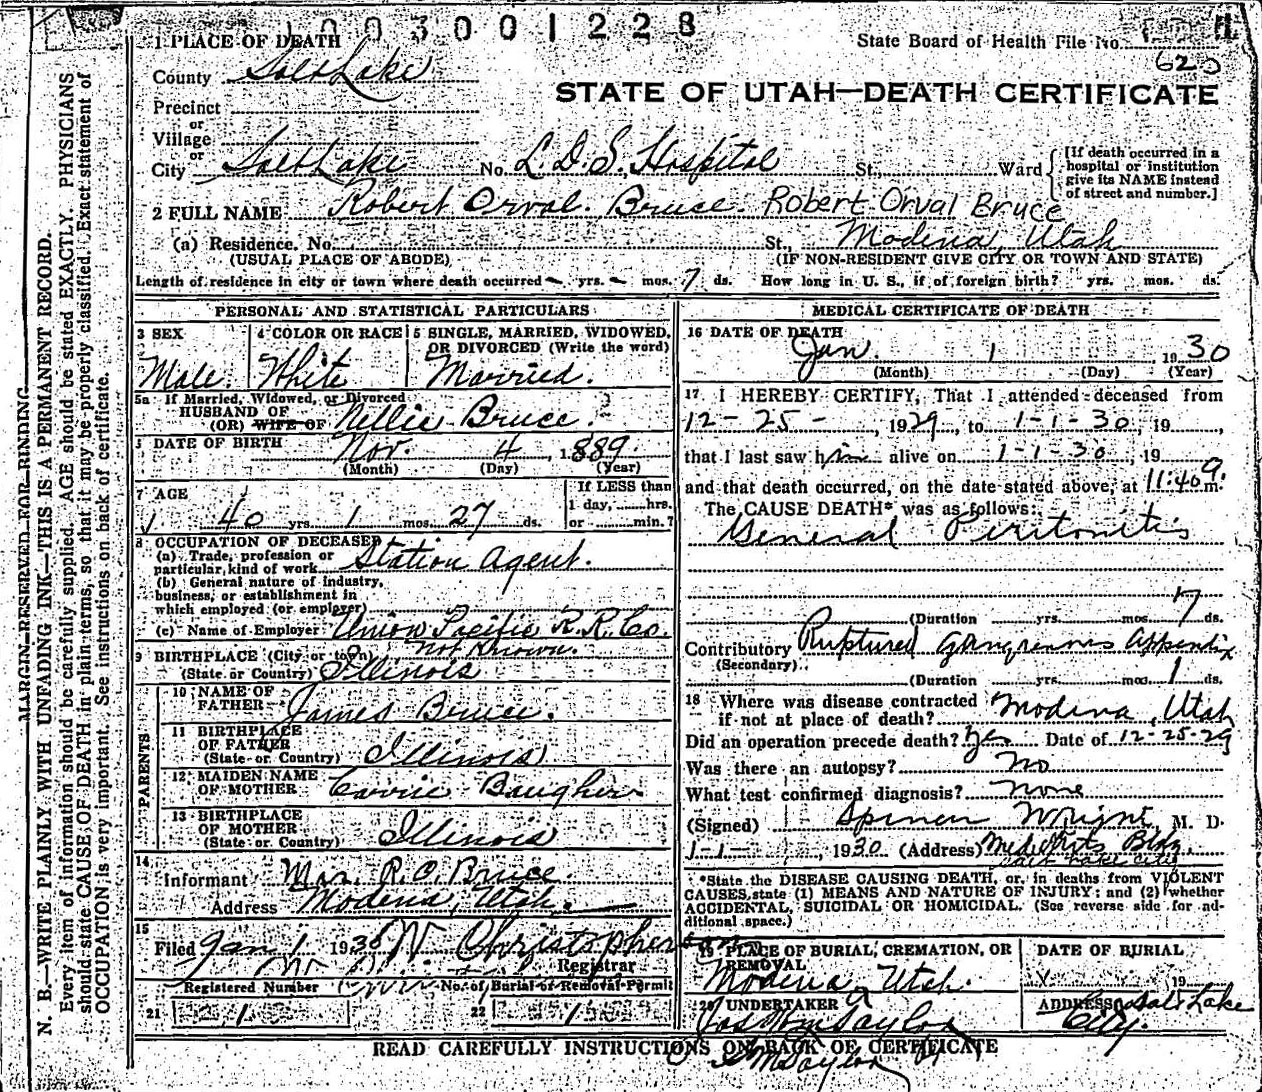 003001228
1 PLACE OF DEATH
State Board of Health File No.
620
County Salt Lake
STATE OF UTAH—DEATH CERTIFICATE
Precinct
or
Village
or
City Salt Lake No. L. D. S. Hospital St., Ward
[If death occurred in a
hospital or institution
give its NAME instead
of street and number.]
2 FULL NAME Robert Orval Bruce Robert Orval Bruce
(a) Residence. No. St., Modena, Utah
(USUAL PLACE OF ABODE) (IF NON-RESIDENT GIVE CITY OR TOWN AND STATE)
Length of residence in city or town where death occurred — yrs. — mos. 7 ds. How long in U. S., if of foreign birth? yrs. mos. ds.
PERSONAL AND STATISTICAL PARTICULARS
3 SEX
Male.
4 COLOR OR RACE
White
5 SINGLE, MARRIED, WIDOWED,
OR DIVORCED (Write the word)
Married.
5a If Married, Widowed, or Divorced
HUSBAND OF
(OR) WIFE OF Nellie Bruce
DATE OF BIRTH Nov. 4, 1889
(Month) (Day) (Year)
7 AGE
40 yrs. 1 mos. 27 ds.
If LESS than
1 day, hrs.
or min.?
8 OCCUPATION OF DECEASED
(a) Trade, profession or
particular, kind of work Station Agent.
(b) General nature of industry,
business, or establishment in
which employed (or employer)
(c) Name of Employer Union Pacific R. R. Co.
9 BIRTHPLACE (City or town) not known.
(State or Country) Illinois
PARENTS
10 NAME OF
FATHER James Bruce.
11 BIRTHPLACE
OF FATHER
(State or Country) Illinois
12 MAIDEN NAME
OF MOTHER Carrie Baugher
13 BIRTHPLACE
OF MOTHER
(State or Country) Illinois
14
Informant Mrs. R. O. Bruce.
Address Modena, Utah.
15
Filed Jan 1 1930 W. Christopherson
Registrar
Registered Number No. of Burial or Removal Permit
21 1 22 1
MEDICAL CERTIFICATE OF DEATH
16 DATE OF DEATH
Jan. 1, 1930
(Month) (Day) (Year)
17 I HEREBY CERTIFY, That I attended deceased from
12-25-, 1929, to 1-1-30, 19 ,
that I last saw him alive on 1-1-30, 19
and that death occurred, on the date stated above, at 11:40 m.
The CAUSE DEATH* was as follows:
General Peritonitis
(Duration yrs. mos. 7 ds.
Contributory Ruptured Gangrenous Appendix
(Secondary)
(Duration yrs. mos. 1 ds.
18 Where was disease contracted
if not at place of death? Modena, Utah
Did an operation precede death? Yes Date of 12-25-29
Was there an autopsy? No
What test confirmed diagnosis? None
(Signed) Spencer Wright, M. D.
1-1-, 1930 (Address) Med. Arts Bldg.
Salt Lake City
*State the DISEASE CAUSING DEATH, or, in deaths from VIOLENT
CAUSES, state (1) MEANS AND NATURE OF INJURY; and (2) whether
ACCIDENTAL, SUICIDAL OR HOMICIDAL. (See reverse side for ad-
ditional space.)
19 PLACE OF BURIAL, CREMATION, OR
REMOVAL
Modena, Utah.
DATE OF BURIAL
19
20 UNDERTAKER
Jos Wm Taylor
ADDRESS Salt Lake
City.
READ CAREFULLY INSTRUCTIONS ON BACK OF CERTIFICATE
MARGIN RESERVED FOR BINDING
N. B.—WRITE PLAINLY WITH UNFADING INK—THIS IS A PERMANENT RECORD.
Every item of information should be carefully supplied. AGE should be stated EXACTLY. PHYSICIANS
should state CAUSE OF DEATH in plain terms, so that it may be properly classified. Exact statement of
OCCUPATION is very important. See instructions on back of certificate.